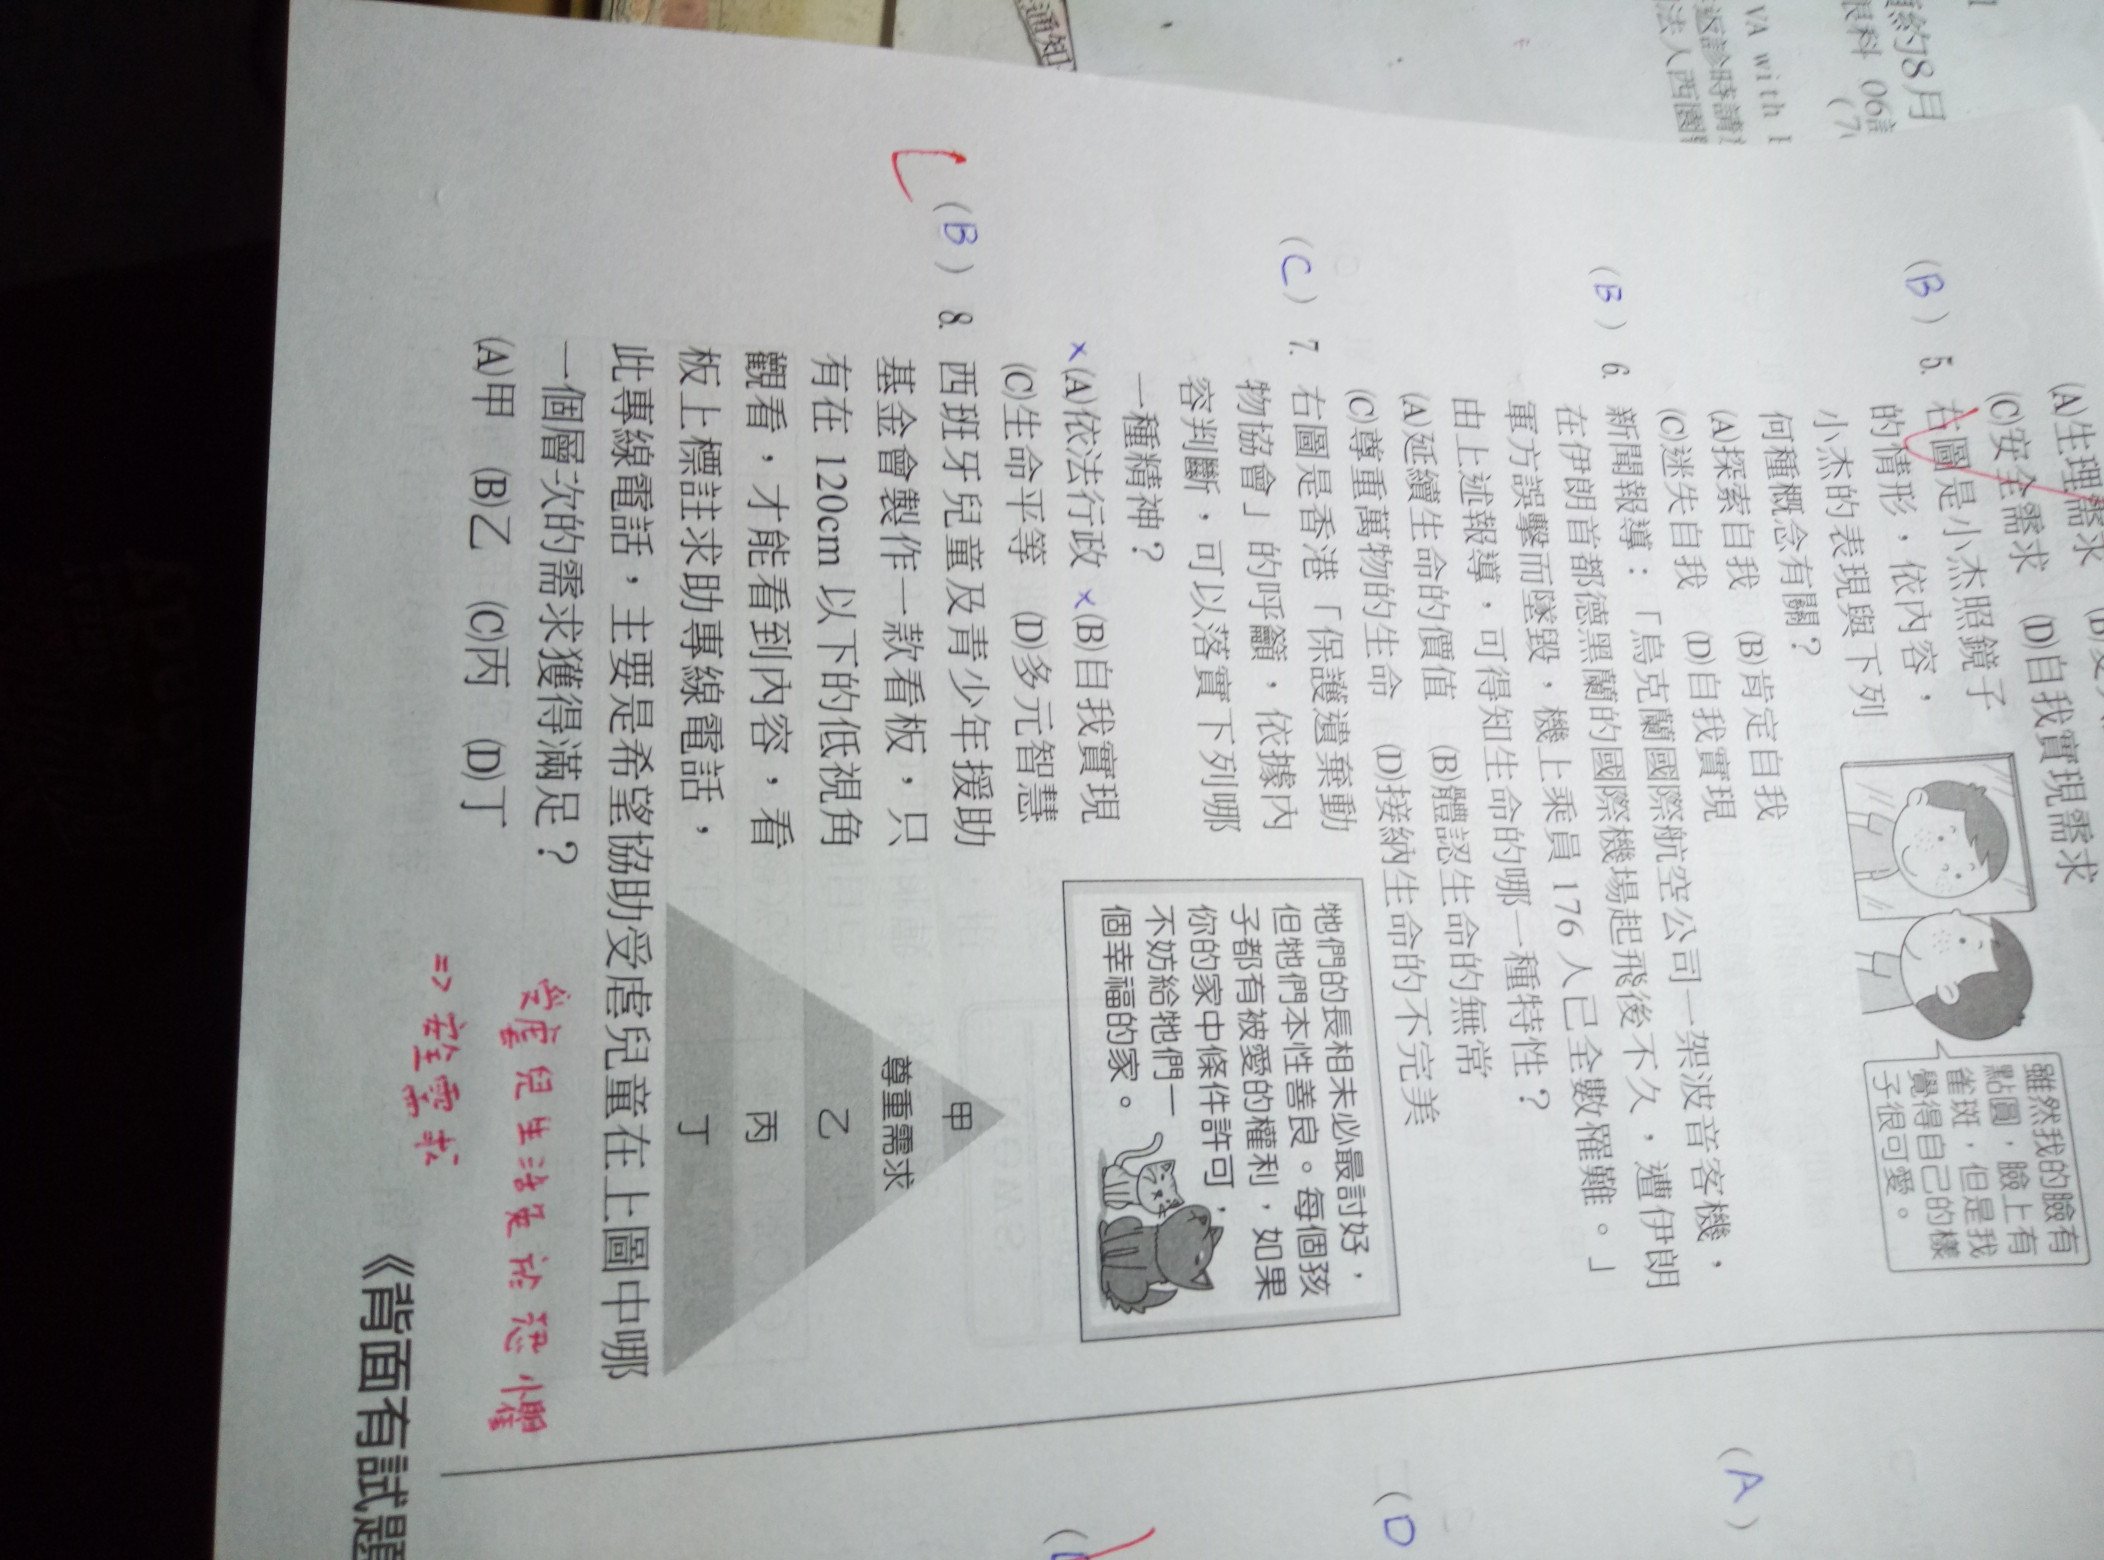 (A)生理需求
(C)安全需求 (D)自我實現需求
(B) 5. 右圖是小杰照鏡子
的情形，依內容，
小杰的表現與下列
何種概念有關？
(A)探索自我 (B)肯定自我
(C)迷失自我 (D)自我實現
雖然我的臉有
點圓，臉上有
雀斑，但是我
覺得自己的樣
子很可愛。
(B) 6. 新聞報導：「烏克蘭國際航空公司一架波音客機，
在伊朗首都德黑蘭的國際機場起飛後不久，遭伊朗
軍方誤擊而墜毀，機上乘員 176 人已全數罹難。」
由上述報導，可得知生命的哪一種特性？
(A)延續生命的價值 (B)體認生命的無常
(C)尊重萬物的生命 (D)接納生命的不完美
(C) 7. 右圖是香港「保護遺棄動
物協會」的呼籲，依據內
容判斷，可以落實下列哪
一種精神？
×(A)依法行政 ×(B)自我實現
(C)生命平等 (D)多元智慧
牠們的長相未必最討好，
但牠們本性善良。每個孩
子都有被愛的權利，如果
你的家中條件許可，
不妨給牠們一
個幸福的家。
(B) 8. 西班牙兒童及青少年援助
基金會製作一款看板，只
有在 120cm 以下的低視角
觀看，才能看到內容，看
板上標註求助專線電話，
此專線電話，主要是希望協助受虐兒童在上圖中哪
一個層次的需求獲得滿足？
(A)甲 (B)乙 (C)丙 (D)丁
甲
尊重需求
乙
丙
丁
受虐兒生活是於恐懼
=> 安全需求
《背面有試題
(A)
(D
通知
約8月
眼科 06
VA with
返診時請
法人西園